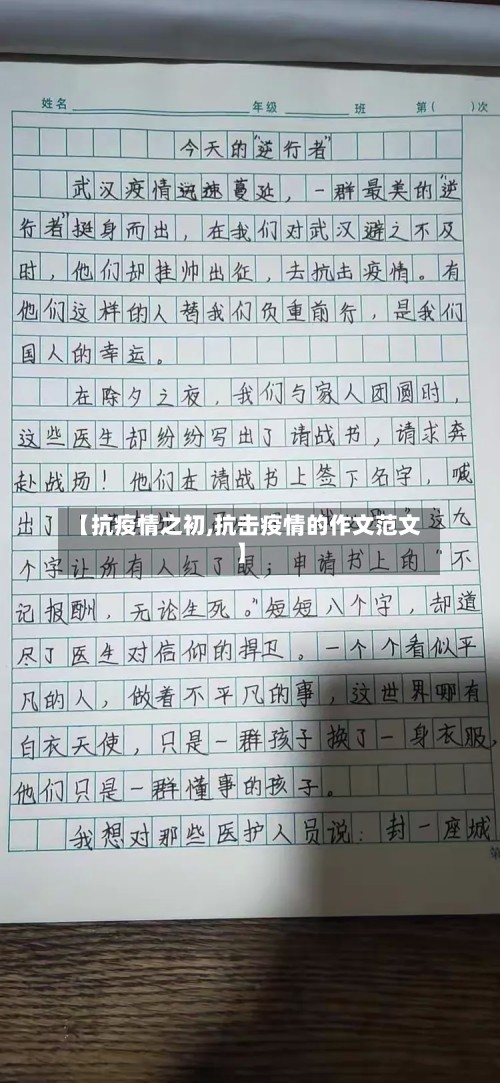 姓名 年级 班 第( )次
今天的“逆行者”
武汉疫情迅速蔓延，一群最美的“逆
行者”挺身而出，在我们对武汉避之不及
时，他们却挂帅出征，去抗击疫情。有
他们这样的人替我们负重前行，是我们
国人的幸运。
在除夕之夜，我们与家人团圆时，
这些医生却纷纷写出了请战书，请求奔
赴战场！他们在请战书上签下名字，喊
出了 这九
【抗疫情之初,抗击疫情的作文范文
】
个字让所有人红了眼；申请书上的“不
记报酬，无论生死。”短短八个字，却道
尽了医生对信仰的捍卫。一个个看似平
凡的人，做着不平凡的事，这世界哪有
白衣天使，只是一群孩子换了一身衣服，
他们只是一群懂事的孩子。
我想对那些医护人员说：封一座城
第